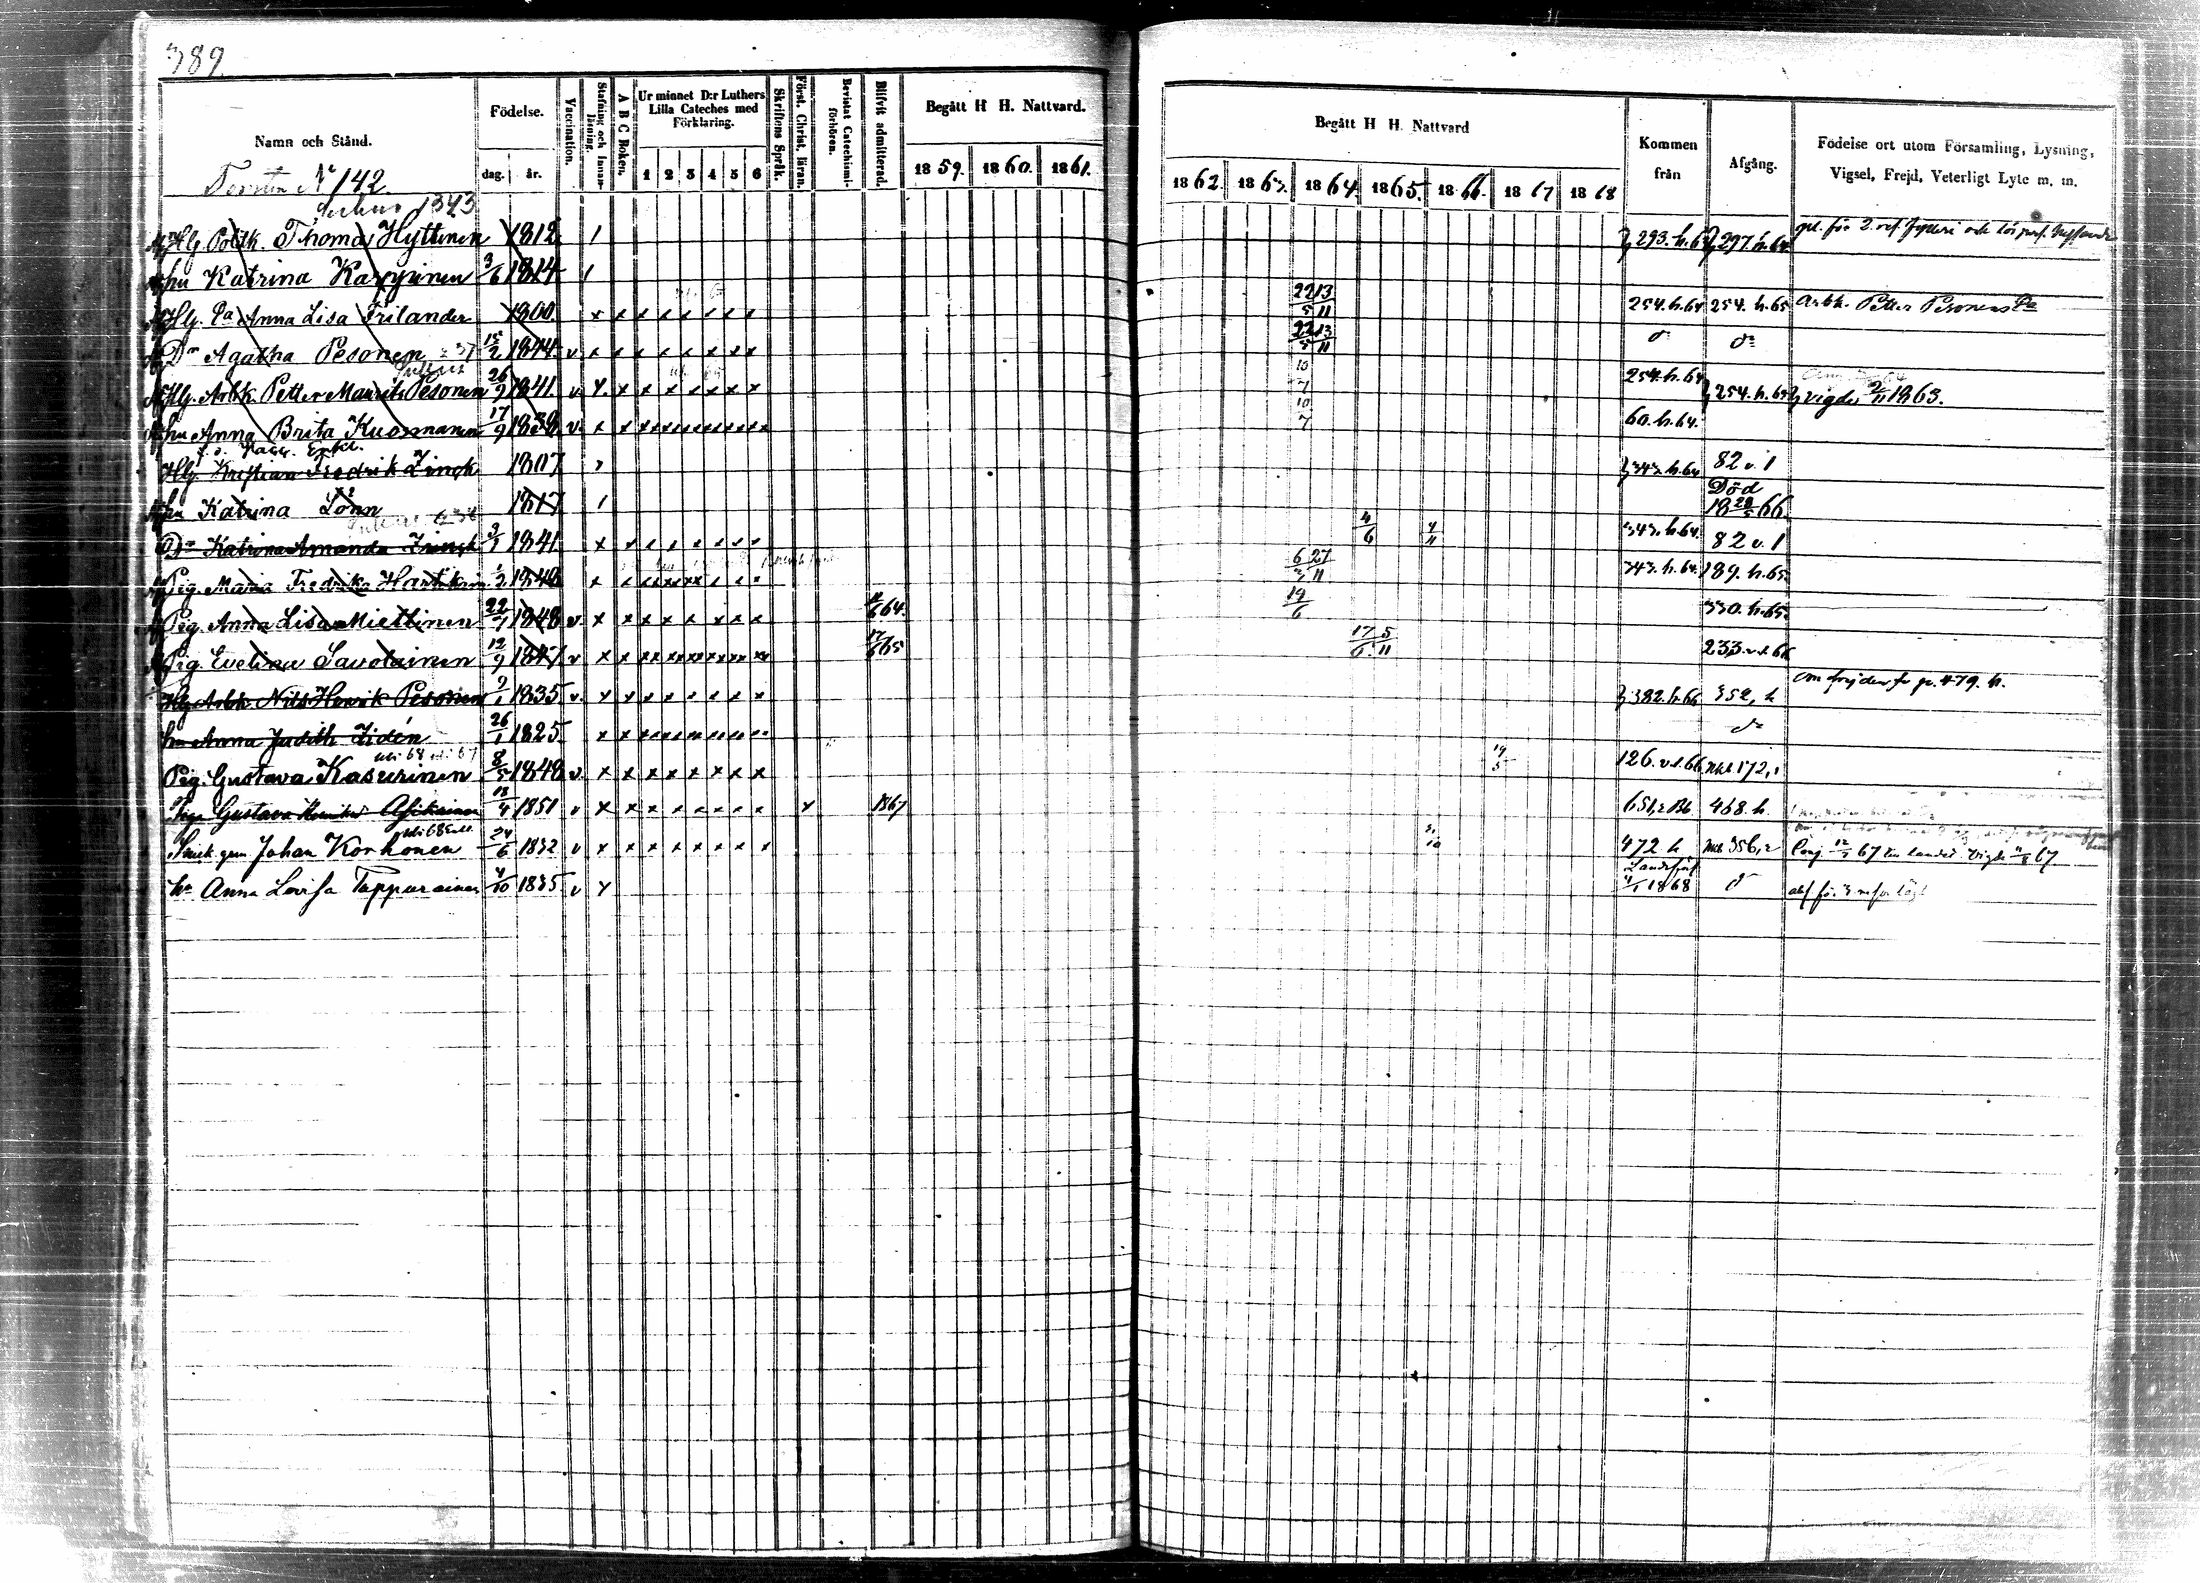 389
Namn och Stånd.
Födelse.
dag. år.
Vaccination.
Stafning och Innanläsning.
A B C Boken.
Ur minnet D:r Luthers Lilla Cateches med Förklaring.
1 2 3 4 5 6
Skriftens Språk.
Först. Christ. läran.
Bevistat Catechismiförhören.
Blifvit admitterad.
Begått H H. Nattvard.
1859. 1860. 1861.
Begått H H. Nattvard
1862. 1863. 1864. 1865. 1866. 1867 1868
Kommen från
Afgång.
Födelse ort utom Församling, Lysning, Vigsel, Frejd, Veterligt Lyte m. m.
Tomten No 142.
1343
Hlg Polk. Thomas Hyttinen 1812 293.h.64 297.h.64
hu Katrina Karppinen 3/6 1814
Hlg. Pa Anna Lisa Frilander 1800. 22/5 13/11 254.h.64 254.h.65 Arbk. Petter Pesonens Pa
Dr Agatha Pesonen 15/2 1844. v 22/5 13/11 do do
Hlg. Arbk. Petter Maurits Pesonen 26/9 1841. v. 254.h.64 254.h.65 vigde 1863.
hu Anna Brita Kuosmanen 17/9 1838 v. 10/7 60.h.64.
Hlg. Kristian Fredrik Zinck 1807 343.h.64 82 v. 1
hu Katrina Lönn 1817 Död 18 28/5 66.
Dr Katrina Amanda Zinck 3/1 1841 4/6 4/11 343.h.64. 82 v. 1
Pig. Maria Fredrika Hartikain 1/2 1848 6/3 27/11 343.h.64. 189.h.65.
Pig. Anna Lisa Miettinen 22/7 1848 v. 11/6 64. 19/6 330.h.65.
Pig. Evelina Savolainen 12/9 1847 v 17/6 65 17/6 5/11 233.v.1.66
Hlg Arbk. Nils Henrik Pesonen 9/1 1835. v. 382.h.66 352, h Om frejden se p. 479. h.
hu Anna Judith Zidén 26/1 1825. do
Pig. Gustava Kasurinen 8/5 1848 v. 19/5 126.v.1.66 Nkb 172,1
Piga Gustava Asikainen 13/4 1851 v 1867 651,2 Bb 468.h.
Smed. gen Johan Korhonen 24/6 1832 v 472 h Nkb 356,2 Lysj 12/5 67 vigde 11/8 67
hu Anna Lovisa Tappurainen 4/10 1835 v 4/1 1868 do